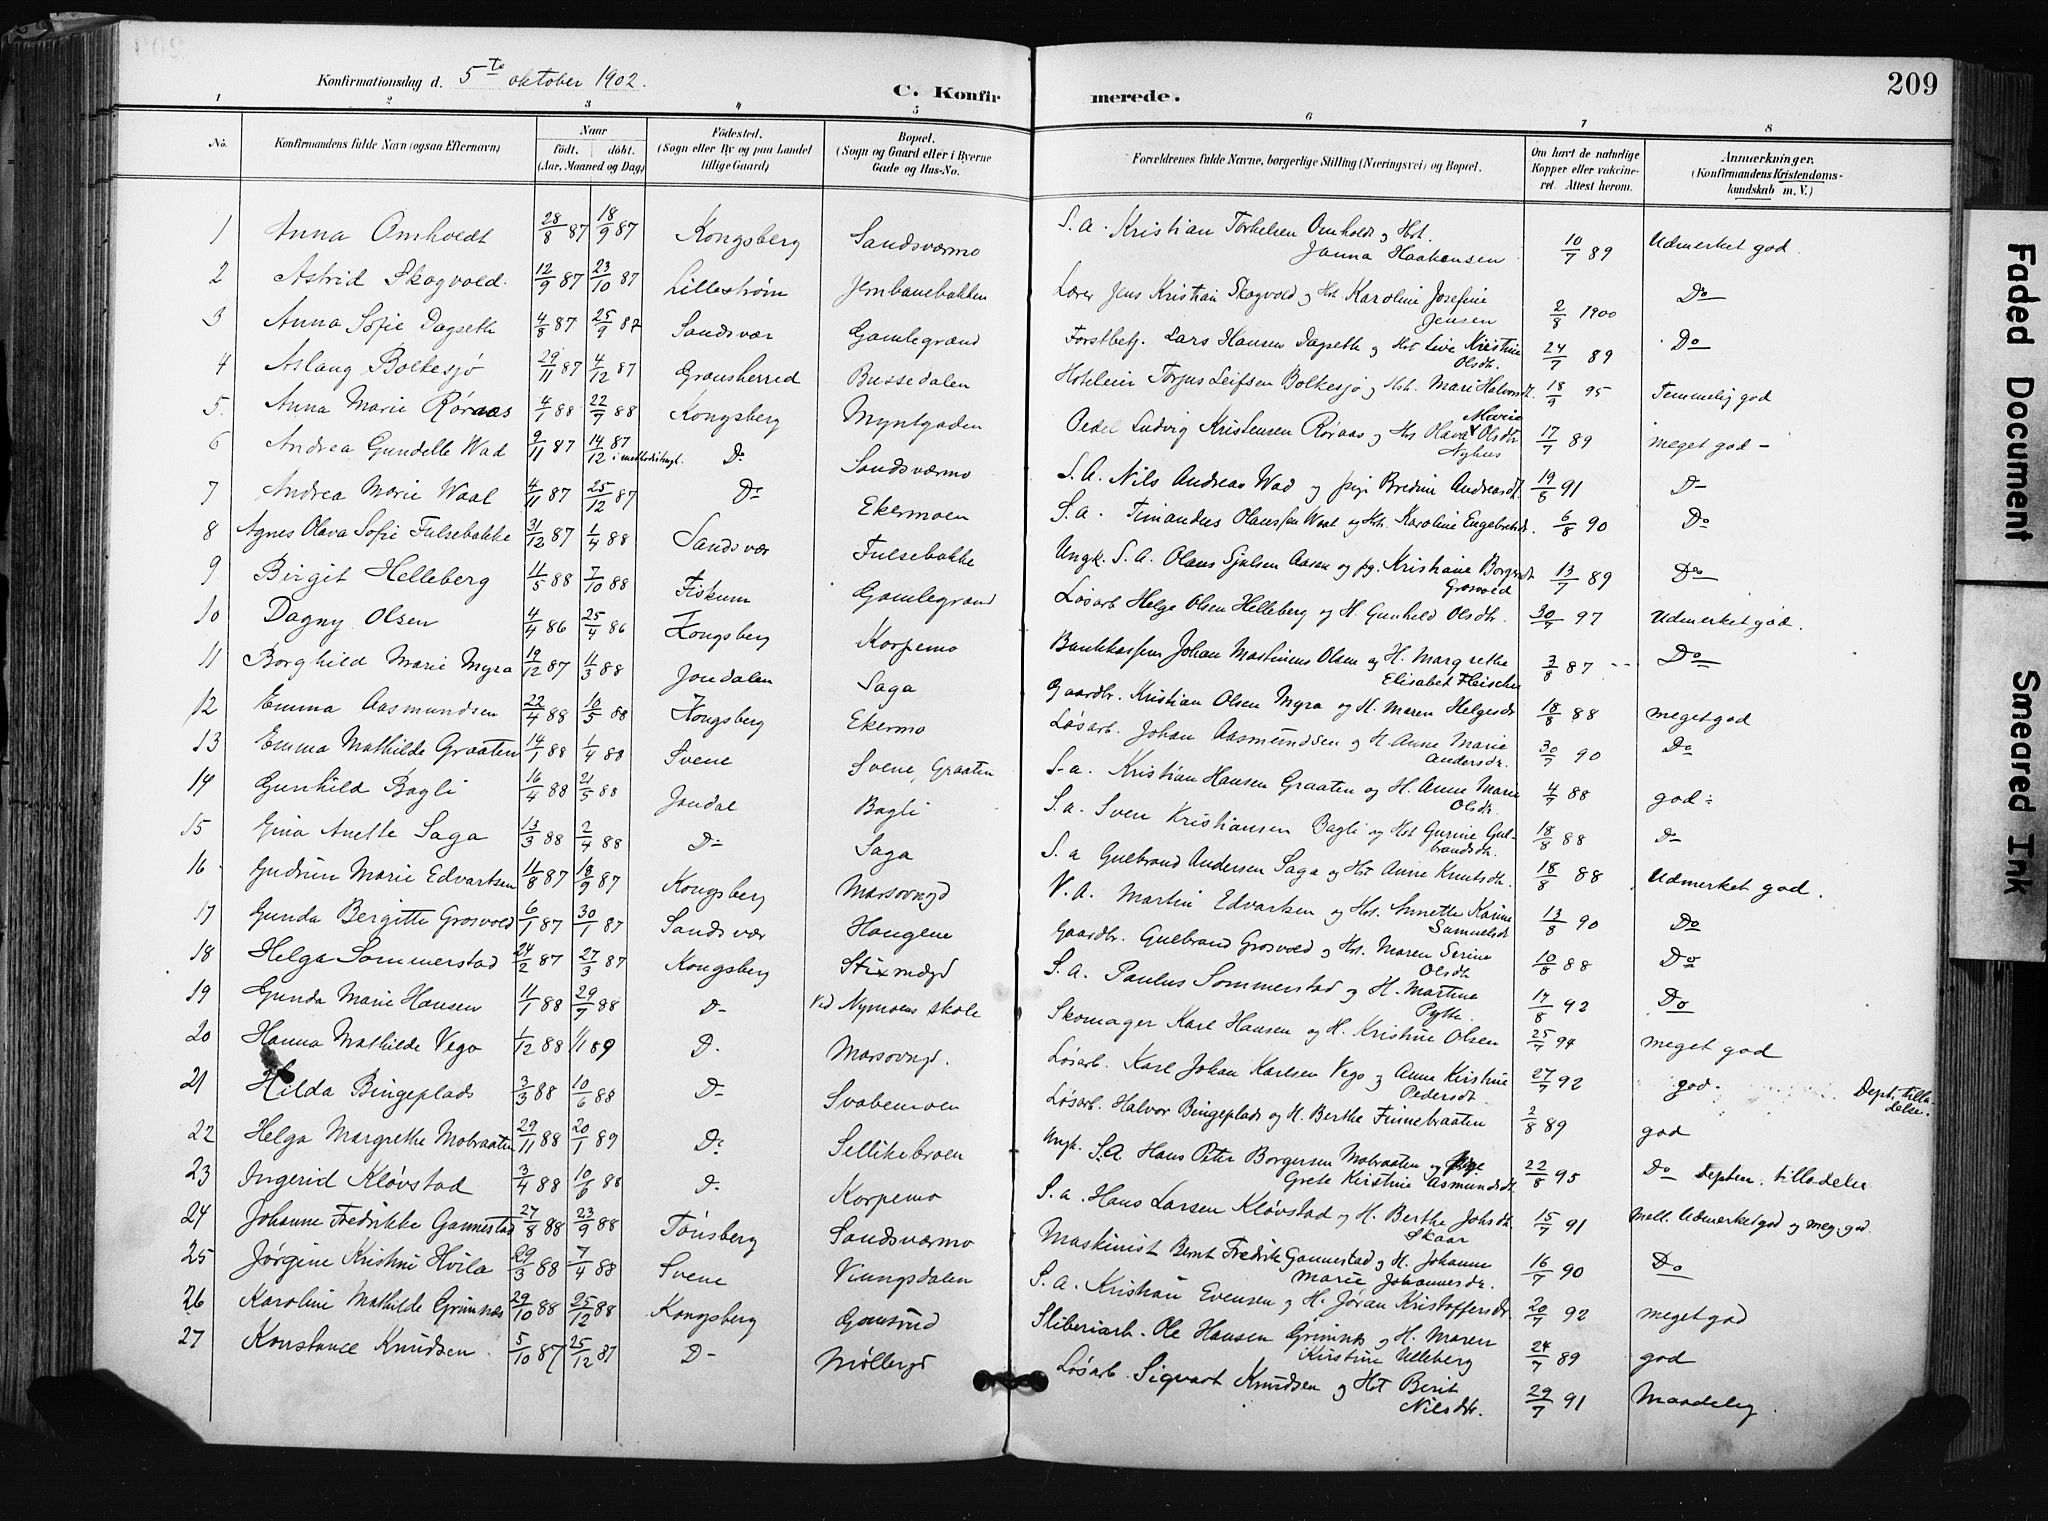 209
Konfirmationsdag d. 5te oktober 1902.
C. Konfirmerede.
1 2 3 4 5 6 7 8
No.
Konfirmandens fulde Navn (ogsaa Efternavn)
Naar
födt. döbt.
(Aar, Maaned og Dag)
Födested.
(Sogn eller By og paa Landet tillige Gaard)
Bopæl.
(Sogn og Gaard eller i Byerne Gade og Hus-No.
Forældrenes fulde Navne, borgerlige Stilling (Næringsvei) og Bopæl.
Om havt de naturlige Kopper eller vakcineret. Attest herom.
Anmærkninger.
(Konfirmandens Kristendomskundskab m. V.)
1 Anna Omholdt 28/8 87 18/9 87 Kongsberg Sandsværmo S. a. Kristian Torkelsen Omholdt og Hst. Janna Haakensen 10/7 89 Udmerket god.
2 Astrid Skogvold 12/9 87 23/10 87 Lillestrøm Jernbanebakken Lærer Jens Kristian Skogvold og Hst. Karoline Josefine Jensen 2/8 1900 Do
3 Anna Sofie Dagseth 4/8 87 25/9 87 Sandsvær Gamlegrænd Forstbetj. Lars Hansen Dagseth og Hst Live Kristine Olsdtr. 24/7 89 Do
4 Aslaug Bolkesjø 29/11 87 4/12 87 Gransherred Bussedalen Hoteleier Torjus Leifsen Bolkesjø og Hst. Mari Halvorsdt. 18/9 95 Temmelig god
5. Anna Marie Røraas 4/1 88 22/9 88 Kongsberg Myntgaden Ludvig Kristensen Røraas og Hst Olava Marie Olsdtr Nyhus 17/7 89 meget god -
6 Andrea Gundelle Wad 9/11 87 14/12 87 Do Sandsværmo S. A. Nils Andreas Wad og pige Bredine Andreasdt. 19/8 91 Do
7 Andrea Marie Waal 4/11 87 25/12 87 Do Ekermoen S. a. Timandus Olaussen Waal og Hst. Karoline Engebretsdt. 6/8 90 Do
8 Agnes Olava Sofie Fulsebakke 31/12 87 1/4 88 Sandsvær Fulsebakke Ungk. S. A. Olaus Sjulsen Aasen og pg. Kristiane Borgersdt Grosvold 13/7 89 Do
9 Birgit Helleberg 11/5 88 7/10 88 Fiskum Gamlegrænd Løsarb Helge Olsen Helleberg og H. Gunhild Olsdtr. 30/7 97 Udmerket god.
10 Dagny Olsen 4/4 86 25/4 86 Kongsberg Korpemo Johan Mastinius Olsen og H. Margrethe Elisabet Fleischer 3/8 87 Do
11 Borghild Marie Myra 19/12 87 11/3 88 Jondalen Saga Gaardbr. Kristian Olsen Myra og H. Maren Helgesdt 18/8 88 meget god
12 Emma Aasmundsen 22/4 88 10/5 88 Kongsberg Ekermo Løsarb. Johan Aasmundsen og H. Anne Marie Andersdt. 30/7 90 Do
13 Emma Mathilde Graaten 14/1 88 1/4 88 Svene Svene, Graaten S. a. Kristian Hansen Graaten og H. Anne Marie Olsdt. 4/7 88 god -
14 Gunhild Bagli 16/4 88 21/5 88 Jondal Bagli S. a. Sven Kristiansen Bagli og Hst Gurine Gulbrandsdt. 18/8 88 Do
15 Gina Anette Saga 13/3 88 2/4 88 Do Saga S. a Gulbrand Andersen Saga og Hst Anne Knutsdt. 18/8 88 Udmerket god.
16 Gudrun Marie Edvartsen 11/8 87 18/9 87 Kongsberg Marsovngd V. A. Martin Edvartsen og Hst. Annette Karine Samuelsdt 13/8 90 Do
17 Gunda Bergitte Grosvold 6/1 87 30/1 87 Sandsvær Haugene Gaardbr. Gulbrand Grosvold og Hst. Maren Serine Olsdt 10/8 88 Do
18 Helga Sommerstad 24/2 87 27/3 87 Kongsberg S. A. Paulus Sommerstad og H. Martine Pytte. 17/8 92 Do
19 Gunda Marie Hansen 11/1 88 29/7 88 D- Ved Nymoens skole Skomager Karl Hansen og H. Kristine Olsen 25/7 94 meget god
20 Hanna Mathilde Vego 1/12 88 1/1 89 D. Marsovngd. Løsarb. Karl Johan Karlsen Vego og Anne Kirstine Pedersdt 27/7 92 god. Dept. tilladelse.
21 Hilda Bingeplads 3/3 88 10/6 88 D- Svabemoen Løsarb. Halvor Bingeplads og H. Berthe Finnebraaten 2/8 89 god
22 Helga Margrethe Mobraaten 29/11 88 20/1 89 Do Sellikebroen Ungk. S. A. Hans Peter Borgersen Mobraaten og pige Grete Kirstine Asmundsdt. 22/8 95 Do Depten. tilladelse
23 Ingerid Kløvstad 3/4 88 10/6 88 D. Korpemo S. a. Hans Larsen Kløvstad og H. Berthe Johsdt. Skaar 15/7 91 Mell. Udmerket god og meg. god.
24 Johanne Fredrikke Gannestad 27/8 88 23/9 88 Tønsberg Sandsværmo Maskinist Bernt Fredrik Gannestad og H. Johanne Marie Johannesdt. 16/7 90 Do
25 Jørgine Kristine Hvila 29/3 88 7/4 88 Svene Vinngsdalen S. a. Kristian Evensen og H. Jøran Kristoffersdt. 20/7 92 meget god
26 Karoline Mathilde Grimnæs 29/10 88 25/12 88 Kongsberg Gomsrud Sliberiarb. Ole Hansen Grimnæs og H. Maren Kirstine Ulleberg 24/7 89 god
27 Konstance Knudsen 5/10 87 25/12 87 D- Møllergd Løsarb. Sigvart Knudsen og Hst Berit Nilsdtr. 29/7 91 Maadelig.
Faded Document
Smeared Ink